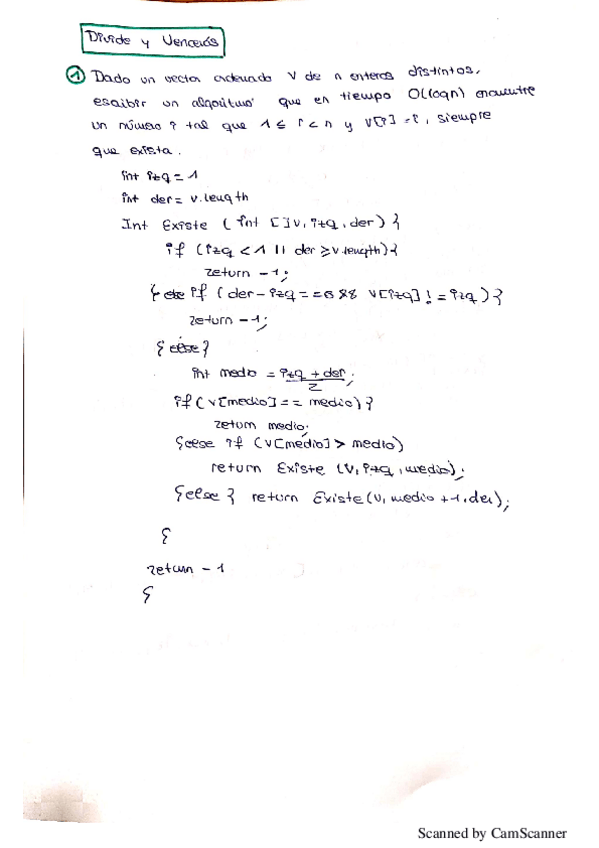 Divide y Vencerás
1 Dado un vector ordenado V de n enteros distintos,
escribir un algoritmo que en tiempo O(logn) encuentre
un número i tal que 1 ≤ i < n y V[i] = i, siempre
que exista.
int izq = 1
int der = v.length
Int Existe ( int []v, izq, der) {
if (izq < 1 || der ≥ v.length) {
return -1;
} else if ( der - izq == 0 && v[izq] != izq ) {
return -1;
} else {
int medio = izq + der ;
2
if ( v[medio] == medio) {
return medio;
} else if (v[medio] > medio)
return Existe (v, izq, medio);
} else { return Existe(v, medio +1, der);
}
return -1
}
Scanned by CamScanner